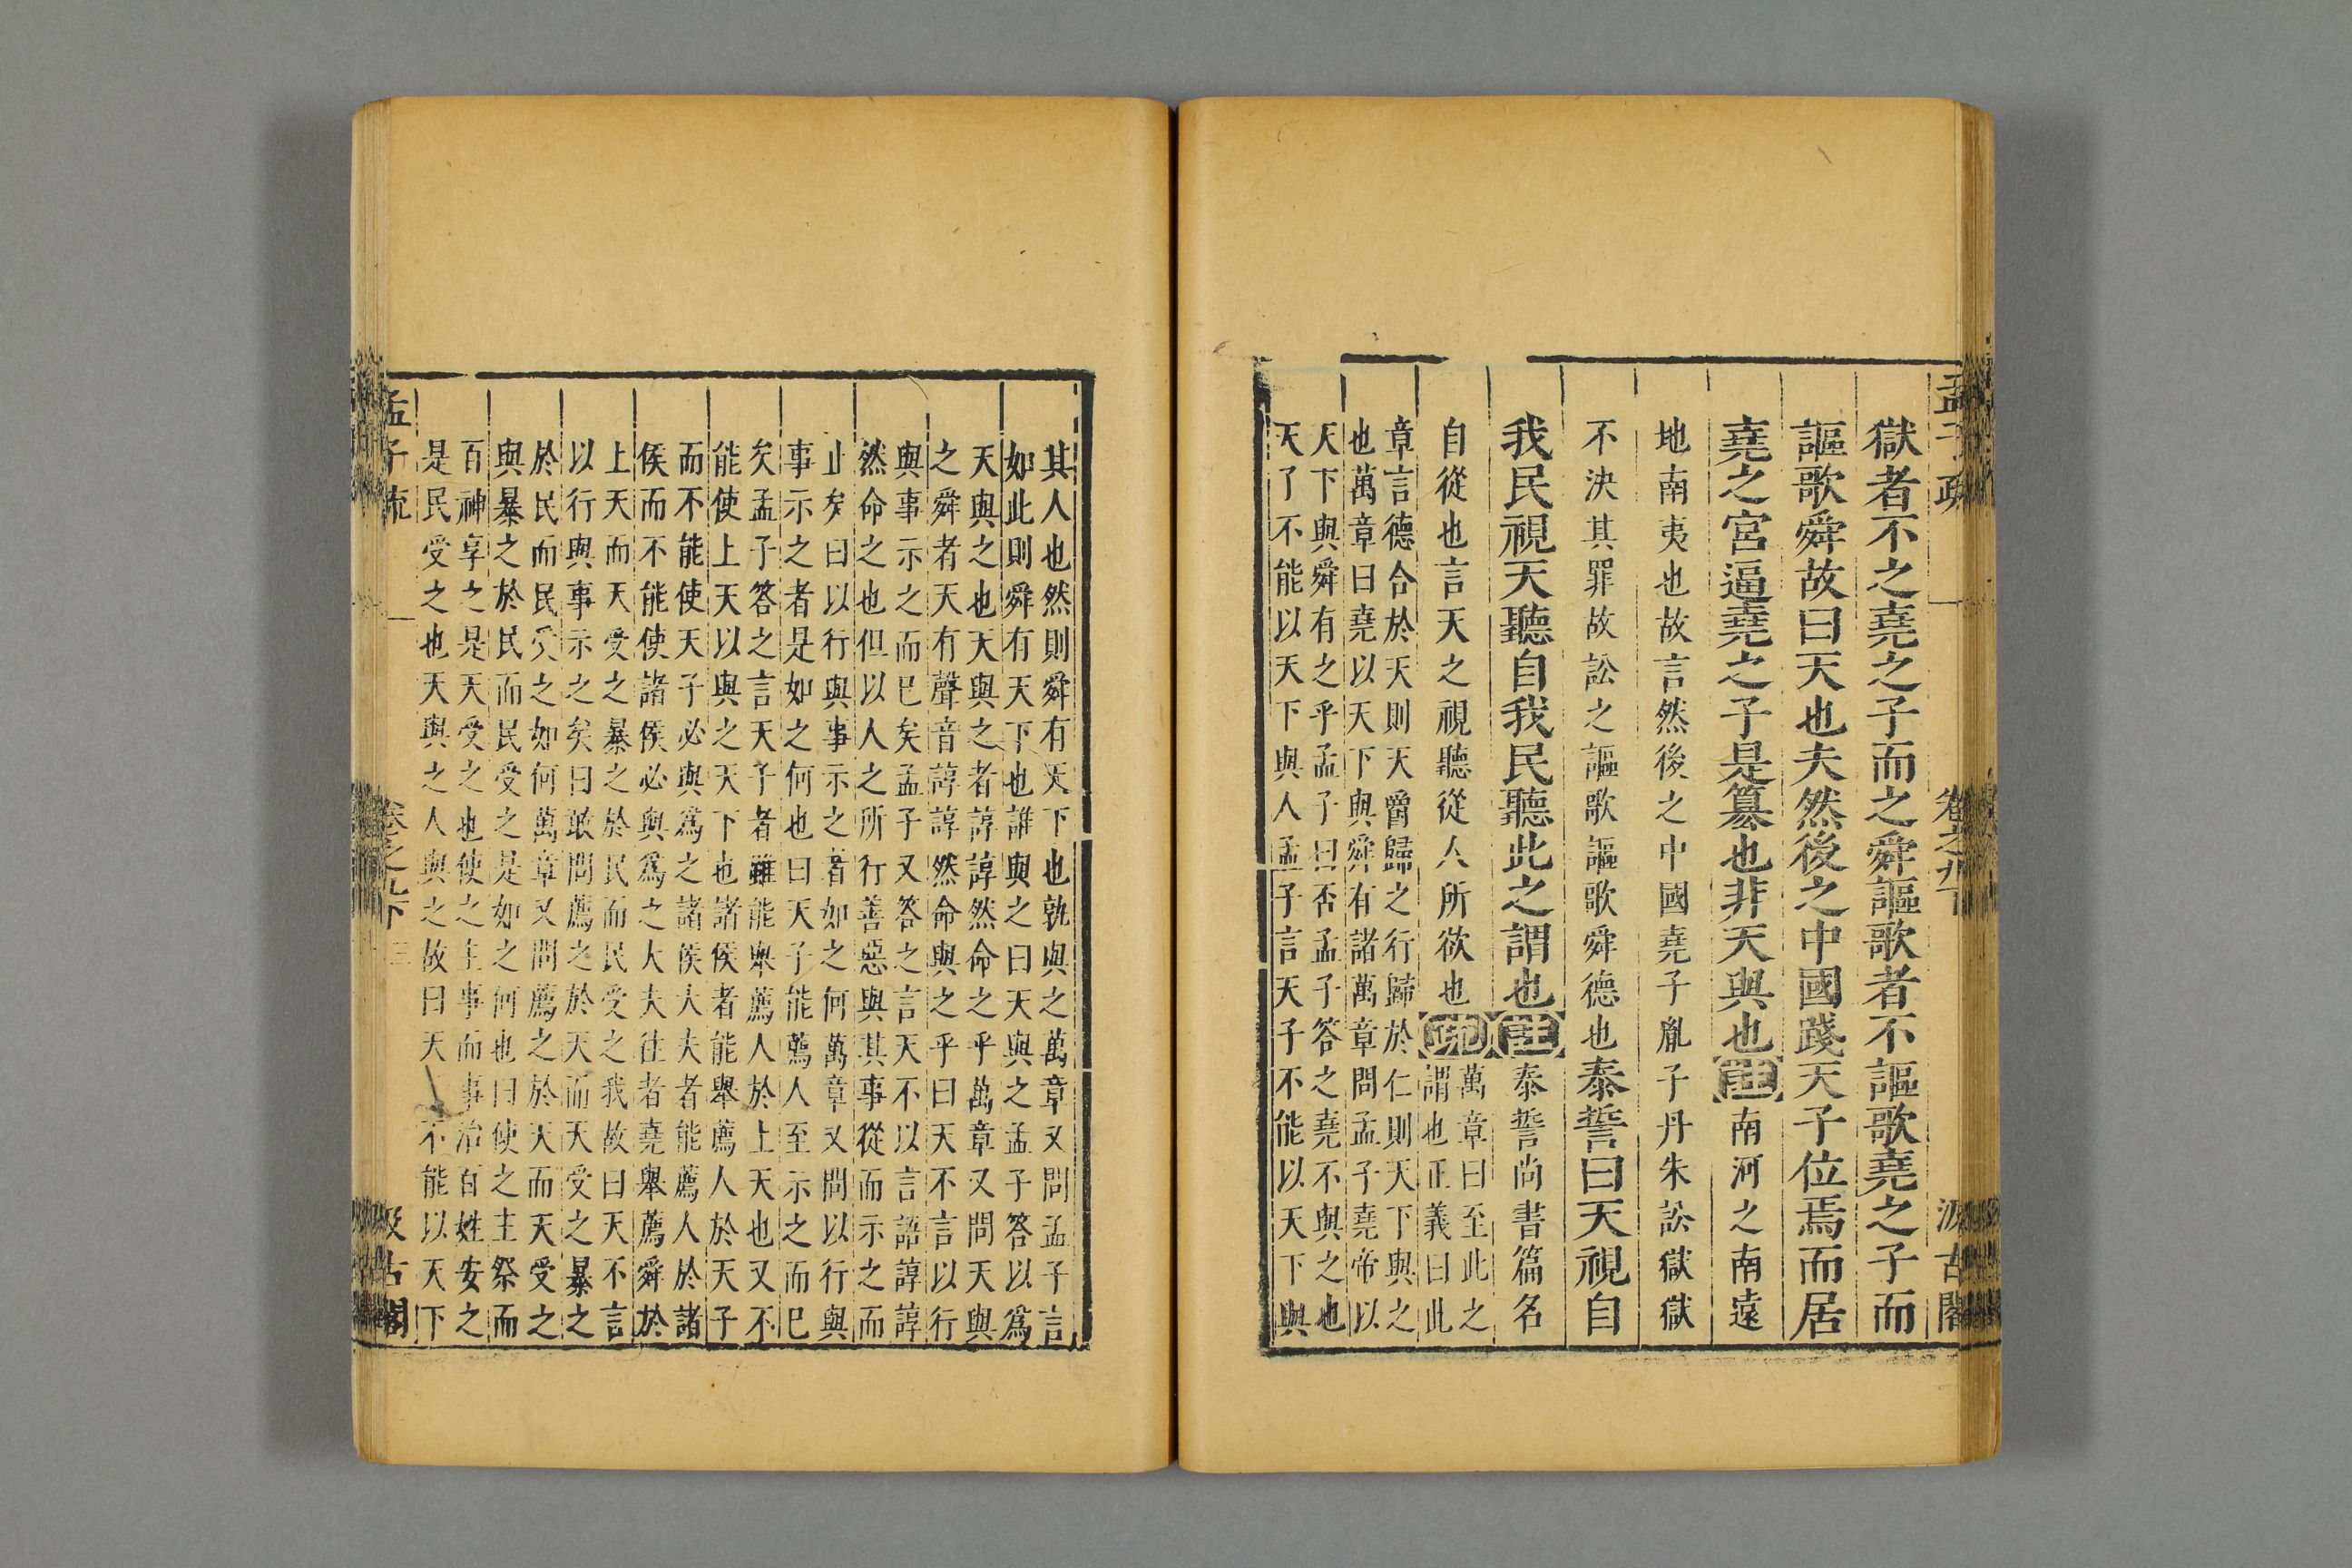 孟子疏
卷之九下
汲古閣
獄者不之堯之子而之舜謳歌者不謳歌堯之子而
謳歌舜故曰天也夫然後之中國踐天子位焉而居
堯之宮逼堯之子是篡也非天與也註南河之南遠
地南夷也故言然後之中國堯子胤子丹朱訟獄獄
不決其罪故訟之謳歌謳歌舜德也泰誓曰天視自
我民視天聽自我民聽此之謂也註泰誓尚書篇名
自從也言天之視聽從人所欲也疏
萬章曰至此之
謂也正義曰此
章言德合於天則天爵歸之行歸於仁則天下與之
也萬章曰堯以天下與舜有諸萬章問孟子堯帝以
天下與舜有之乎孟子曰否孟子答之堯不與之也
天子不能以天下與人孟子言天子不能以天下與
其人也然則舜有天下也孰與之萬章又問孟子言
如此則舜有天下也誰與之曰天與之孟子答以為
天與之也天與之者諄諄然命之乎萬章又問天與
之舜者天有聲音諄諄然命與之乎曰天不言以行
與事示之而已矣孟子又答之言天不以言語諄諄
然命之也但以人之所行善惡與其事從而示之而
止矣曰以行與事示之者如之何萬章又問以行與
事示之者是如之何也曰天子能薦人至示之而已
矣孟子答之言天子者雖能舉薦人於上天也又不
能使上天以與之天下也諸侯者能舉薦人於天子
而不能使天子必與為之諸侯大夫者能薦人於諸
侯而不能使諸侯必與為之大夫往者堯舉薦舜於
上天而天受之暴之於民而民受之我故曰天不言
以行與事示之矣曰敢問薦之於天而天受之暴之
於民而民受之如何萬章又問薦之於天而天受之
與暴之於民而民受之是如之何也曰使之主祭而
百神享之是天受之也使之主事而事治百姓安之
是民受之也天與之人與之故曰天 不能以天下
孟子疏
卷之九下
三
汲古閣